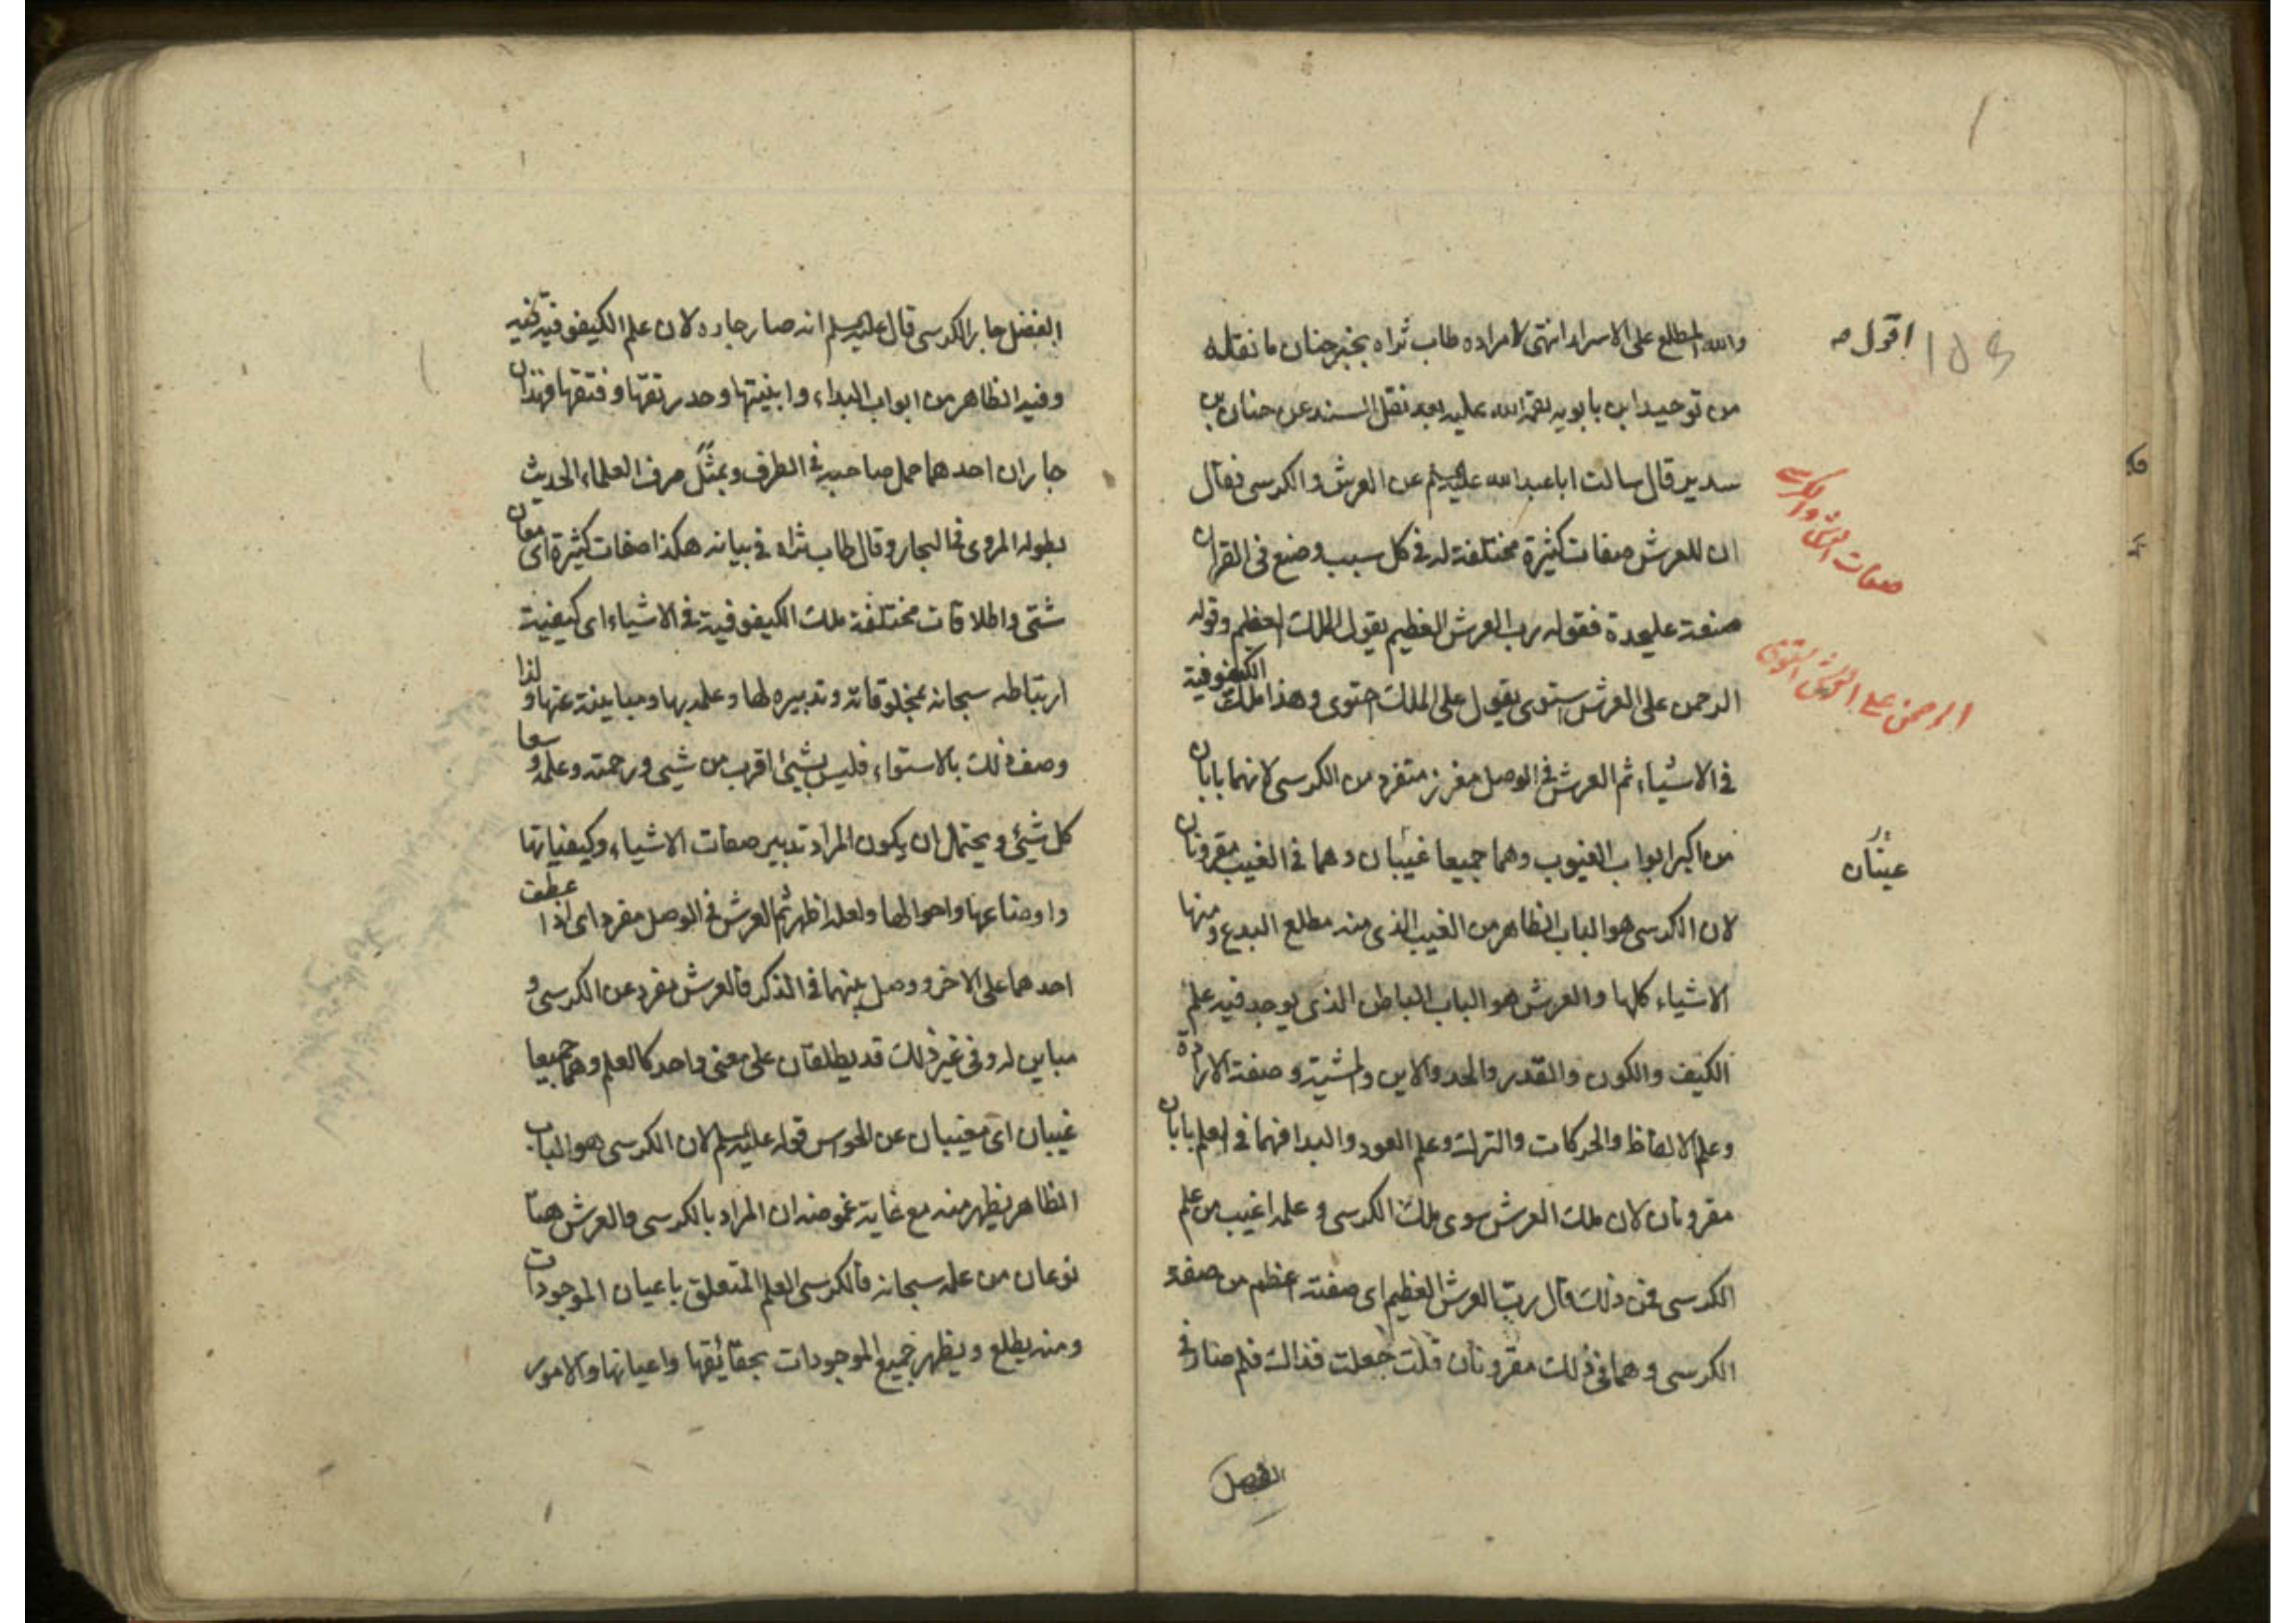 اقول صه
والله المطلع على الاسرار انتهى لامراده طاب ثراه بخبر حنان ما نقله
من توحيد ابن بابويه رحمة الله عليه بعد نقل السند عن حنان بن
سدير قال سالت ابا عبد الله عليه السلم عن العرش و الكرسى فقال
ان للعرش صفات كثيرة مختلفة له فى كل سبب وضع فى القران
صفة عليحدة فقوله رب العرش العظيم يقول الملك العظيم وقوله
الرحمن على العرش استوى يقول على الملك احتوى وهذا ملك الكيفوفية
فى الاشياء ثم العرش فى الوصل مفرز متفرد من الكرسى لانهما بابان
من اكبر ابواب الغيوب وهما جميعا غيبان وهما فى الغيب مقرونان
لان الكرسى هو الباب الظاهر من الغيب الذى منه مطلع البدع ومنها
الاشياء كلها والعرش هو الباب الباطن الذى يوجد فيه علم
الكيف والكون والقدر والحد والاين والمشية وصفة الارادة
وعلم الالفاظ والحركات والترك وعلم العود والبدا فهما فى العلم بابان
مقرونان لان ملك العرش سوى ملك الكرسى وعلمه اغيب من علم
الكرسى فمن ذلك قال رب العرش العظيم اى صفته اعظم من صفة
الكرسى وهما فى ذلك مقرونان قلت جعلت فداك فلم صار فى
الفضل
صفات العرش والكرسى
الرحمن على العرش استوى
عينان
الفضل جار الكرسى قال عليه السلم انه صار جاره لان علم الكيفوفية فيه
وفيه الظاهر من ابواب البداء وابنيتها وحد رتقها وفتقها فهذان
جاران احدهما حمل صاحبه فى الظرف وبمثل صرف العلماء الحديث
بطوله المروى فى البحار وقال طاب ثراه فى بيانه هكذا صفات كثيرة اى معان
شتى واطلاقات مختلفة ملك الكيفوفية فى الاشياء اى كيفية
ارتباطه سبحانه بمخلوقاته وتدبيره لها وعلمه بها ومباينته عنها ولذا
وصف ذلك بالاستواء فليس بشيئ اقرب من شيئ ورحمته وعلمه وسعا
كل شيئ ويحتمل ان يكون المراد تدبير صفات الاشياء وكيفياتها
واوضاعها واحوالها ولعله اظهر ثم العرش فى الوصل مفرد اى اذا عطف
احدهما على الاخر ووصل بينهما فى الذكر فالعرش مفرد عن الكرسى و
مباين له وفى غير ذلك قد يطلقان على معنى واحد كالعلم وهما جميعا
غيبان اى مغيبان عن الحواس قوله عليه السلم لان الكرسى هو الباب
الظاهر يظهر منه مع غاية غموضه ان المراد بالكرسى والعرش هنا
نوعان من علمه سبحانه فالكرسى العلم المتعلق باعيان الموجودات
ومنه يطلع ويظهر جميع الموجودات بحقائقها واعيانها والامور